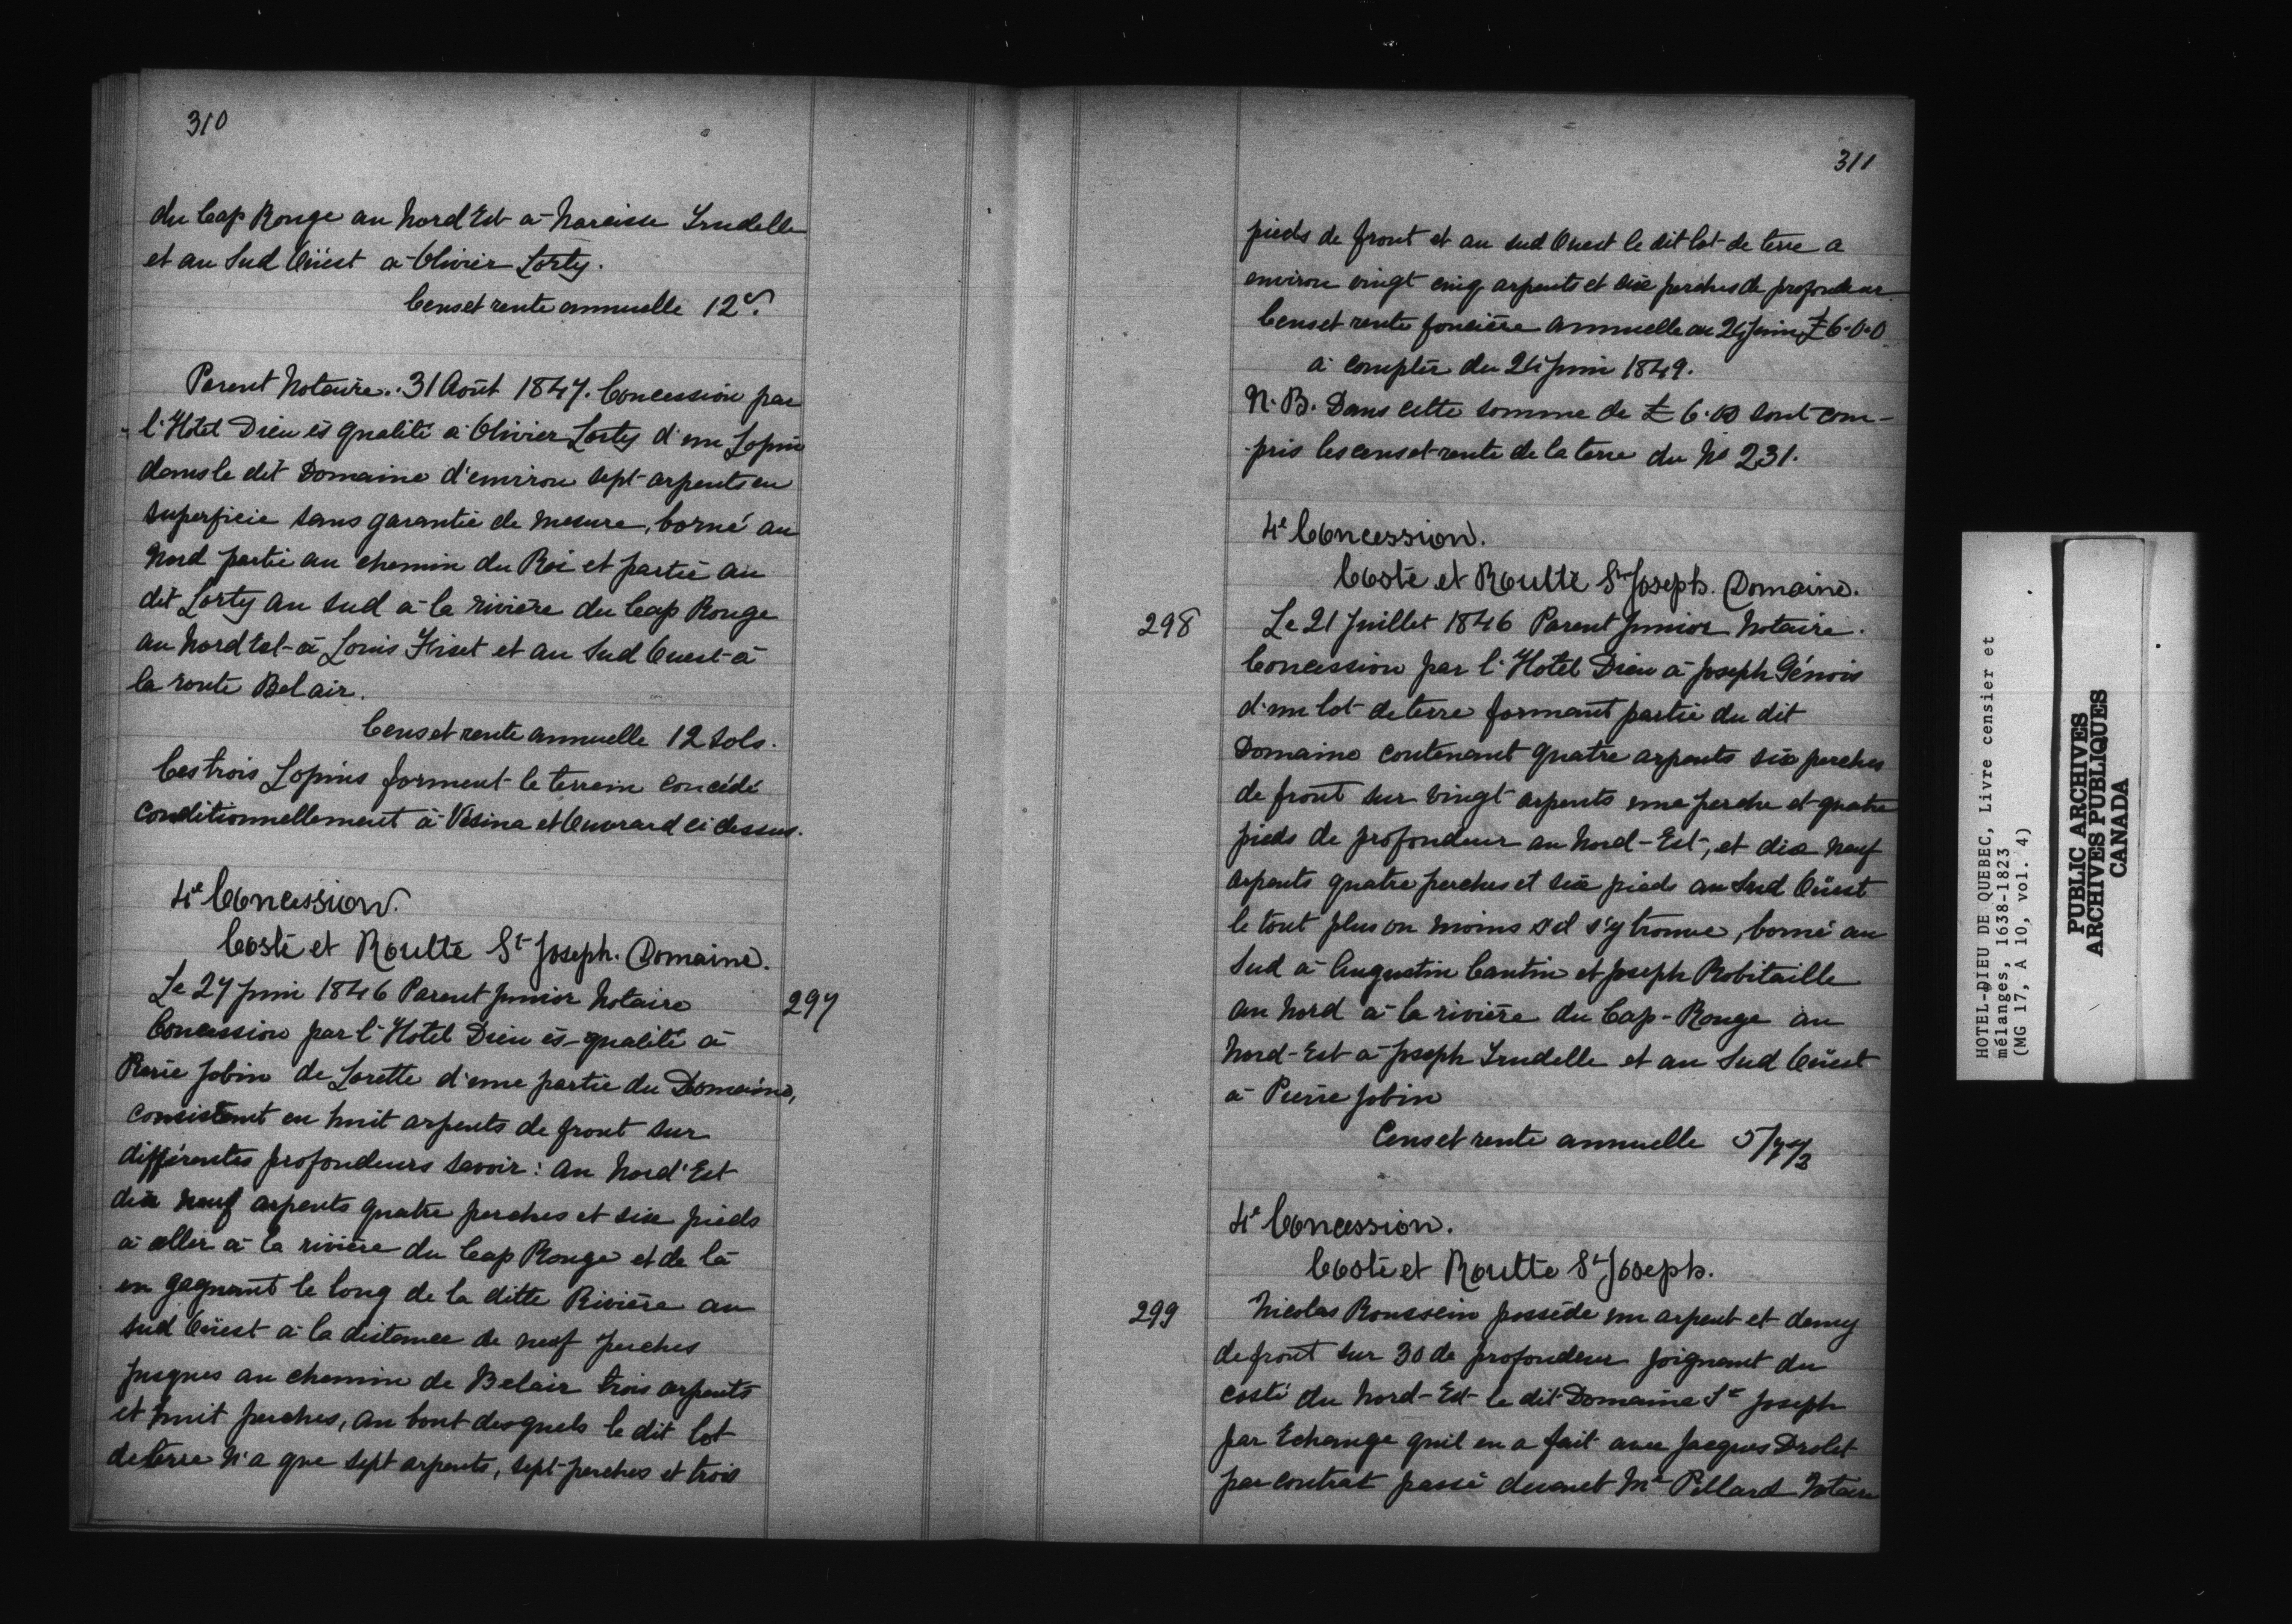 310
du Cap Rouge au Nord Est à Narcisse Trudelle
et au Sud Oüest à Olivier Lorty.
Cens et rente annuelle 12s.
Parent Notaire. 31 Août 1847. Concession par
l'Hotel Dieu ès qualité à Olivier Lorty d'un Lopin
dans le dit Domaine d'environ sept arpents en
superficie sans garantie de mesure, borné au
Nord partie au chemin du Roi et partie au
dit Lorty au Sud à la rivière du Cap Rouge
au Nord Est à Louis Fiset et au Sud Ouest à
la route Bel air.
Cens et rente annuelle 12 Sols.
Ces trois Lopins forment le terrein concédé
conditionnellement à Vésina et Ouvrard ci dessus.
4e Concession.
Costé et Roulte St Joseph. Domaine.
Le 27 Juin 1846 Parent Junior Notaire
297
Concession par l'Hotel Dieu ès-qualité à
Pierre Jobin de Lorette d'une partie du Domaine,
consistant en huit arpents de front sur
différentes profondeurs savoir: au Nord'Est
dix neuf arpents quatre perches et six pieds
à aller à la rivière du Cap Rouge et de là
en gagnant le long de la ditte Rivière au
Sud Oüest à la distance de neuf perches
jusques au chemin de Belair trois arpents
et huit perches, au bout desquels le dit lot
de terre n'a que sept arpents, sept perches et trois
311
pieds de front et au sud Ouest le dit lot de terre a
environ vingt cinq arpents et six perches de profondeur
Cens et rente foncière annuelle au 24 Juin £6.0.0
à compter du 24 Juin 1849.
N.B. Dans cette somme de £6.00 sont com-
-pris les cens et rente de la terre du No 231.
4e Concession.
Costé et Roulte St Joseph. Domaine.
298
Le 21 Juillet 1846 Parent Junior Notaire.
Concession par l'Hotel Dieu à Joseph Génois
d'un lot de terre formant partie du dit
Domaine contenant quatre arpents six perches
de front sur vingt arpents une perche et quatre
pieds de profondeur au Nord-Est, et dix neuf
arpents quatre perches et six pieds au Sud Oüest
le tout plus ou moins s'il s'y trouve, borné au
Sud à Augustin Cantin et Joseph Robitaille
au Nord à la rivière du Cap-Rouge au
Nord-Est à Joseph Trudelle et au Sud Oüest
à Pierre Jobin
Cens et rente annuelle
4e Concession.
Costé et Roulte St Joseph.
299
Nicolas Roussein possède un arpent et demy
de front sur 30 de profondeur joignant du
costé du Nord-Est le dit Domaine St Joseph
par Echange quil en a fait avec Jacques Drolet
par contrat passé devant Mr Pillard Notaire
HOTEL-DIEU DE QUEBEC, Livre censier et
mélanges, 1638-1823
(MG 17, A 10, vol. 4)
PUBLIC ARCHIVES
ARCHIVES PUBLIQUES
CANADA